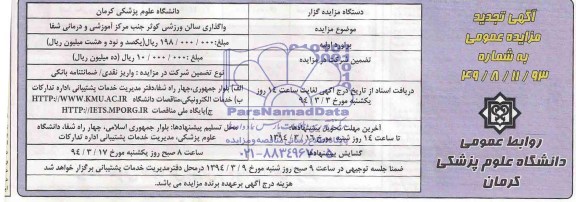 آگهی تجدید
مزایده عمومی
به شماره
۴۹/۸/۱۱/۹۳
روابط عمومی
دانشگاه علوم پزشکی
کرمان
دستگاه مزایده گزار
دانشگاه علوم پزشکی کرمان
موضوع مزایده
واگذاری سالن ورزشی کوثر جنب مرکز آموزشی و درمانی شفا
برآورد اولیه
مبلغ: ۱۹۸/۰۰۰/۰۰۰ ریال(یکصد و نود و هشت میلیون ریال)
تضمین شرکت در مزایده
مبلغ: ۱۰/۰۰۰/۰۰۰ ریال (ده میلیون ریال)
نوع تضمین شرکت در مزایده : واریز نقدی/ ضمانتنامه بانکی
دریافت اسناد از تاریخ درج آگهی لغایت ساعت ۱۴ روز
یکشنبه مورخ ۹۴/۳/۳
الف) بلوار جمهوری،چهار راه شفا،دفتر مدیریت خدمات پشتیبانی ،اداره تدارکات
ب) خدمات الکترونیکی،مناقصات دانشگاه HTTP://WWW.KMU.AC.IR
ج)پایگاه ملی مناقصات HTTP://IETS.MPORG.IR
آخرین مهلت تحویل پیشنهادها:
تا ساعت ۱۴ روز شنبه مورخ ۱۳۹۴/۳/۱۶
محل تسلیم پیشنهادها: بلوار جمهوری اسلامی، چهار راه شفا، دانشگاه
علوم پزشکی، مدیریت خدمات پشتیبانی اداره تدارکات
گشایش پیشنهادها
ساعت ۸ صبح روز یکشنبه مورخ ۹۴/۳/۱۷
ضمنا جلسه توجیهی در ساعت ۹ صبح روز شنبه مورخ ۱۳۹۴/۳/۹ درمحل دفترمدیریت خدمات پشتیبانی برگزار خواهد شد
هزینه درج آگهی برعهده برنده مزایده می باشد.
ParsNamadData
۰۲۱-۸۸۳۴۹۶۷۰-۵